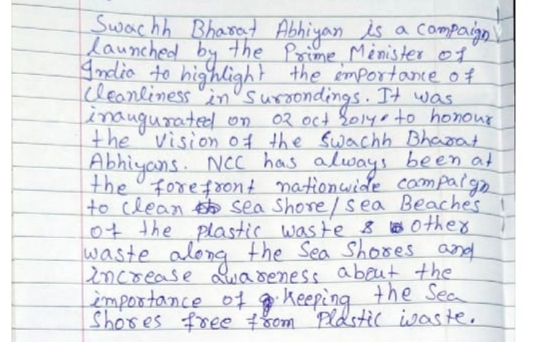 Swachh Bharat Abhiyan is a campaign
launched by the Prime Minister of
India to highlight the importance of
cleanliness in surrondings. It was
inaugurated on 02 oct 2014 to honour
the vision of the Swachh Bharat
Abhiyans. NCC has always been at
the forefront nationwide campaign
to clean sea shore/sea Beaches
of the plastic waste & other
waste along the Sea Shores and
increase awareness about the
importance of Keeping the Sea
Shores free from Plastic waste.